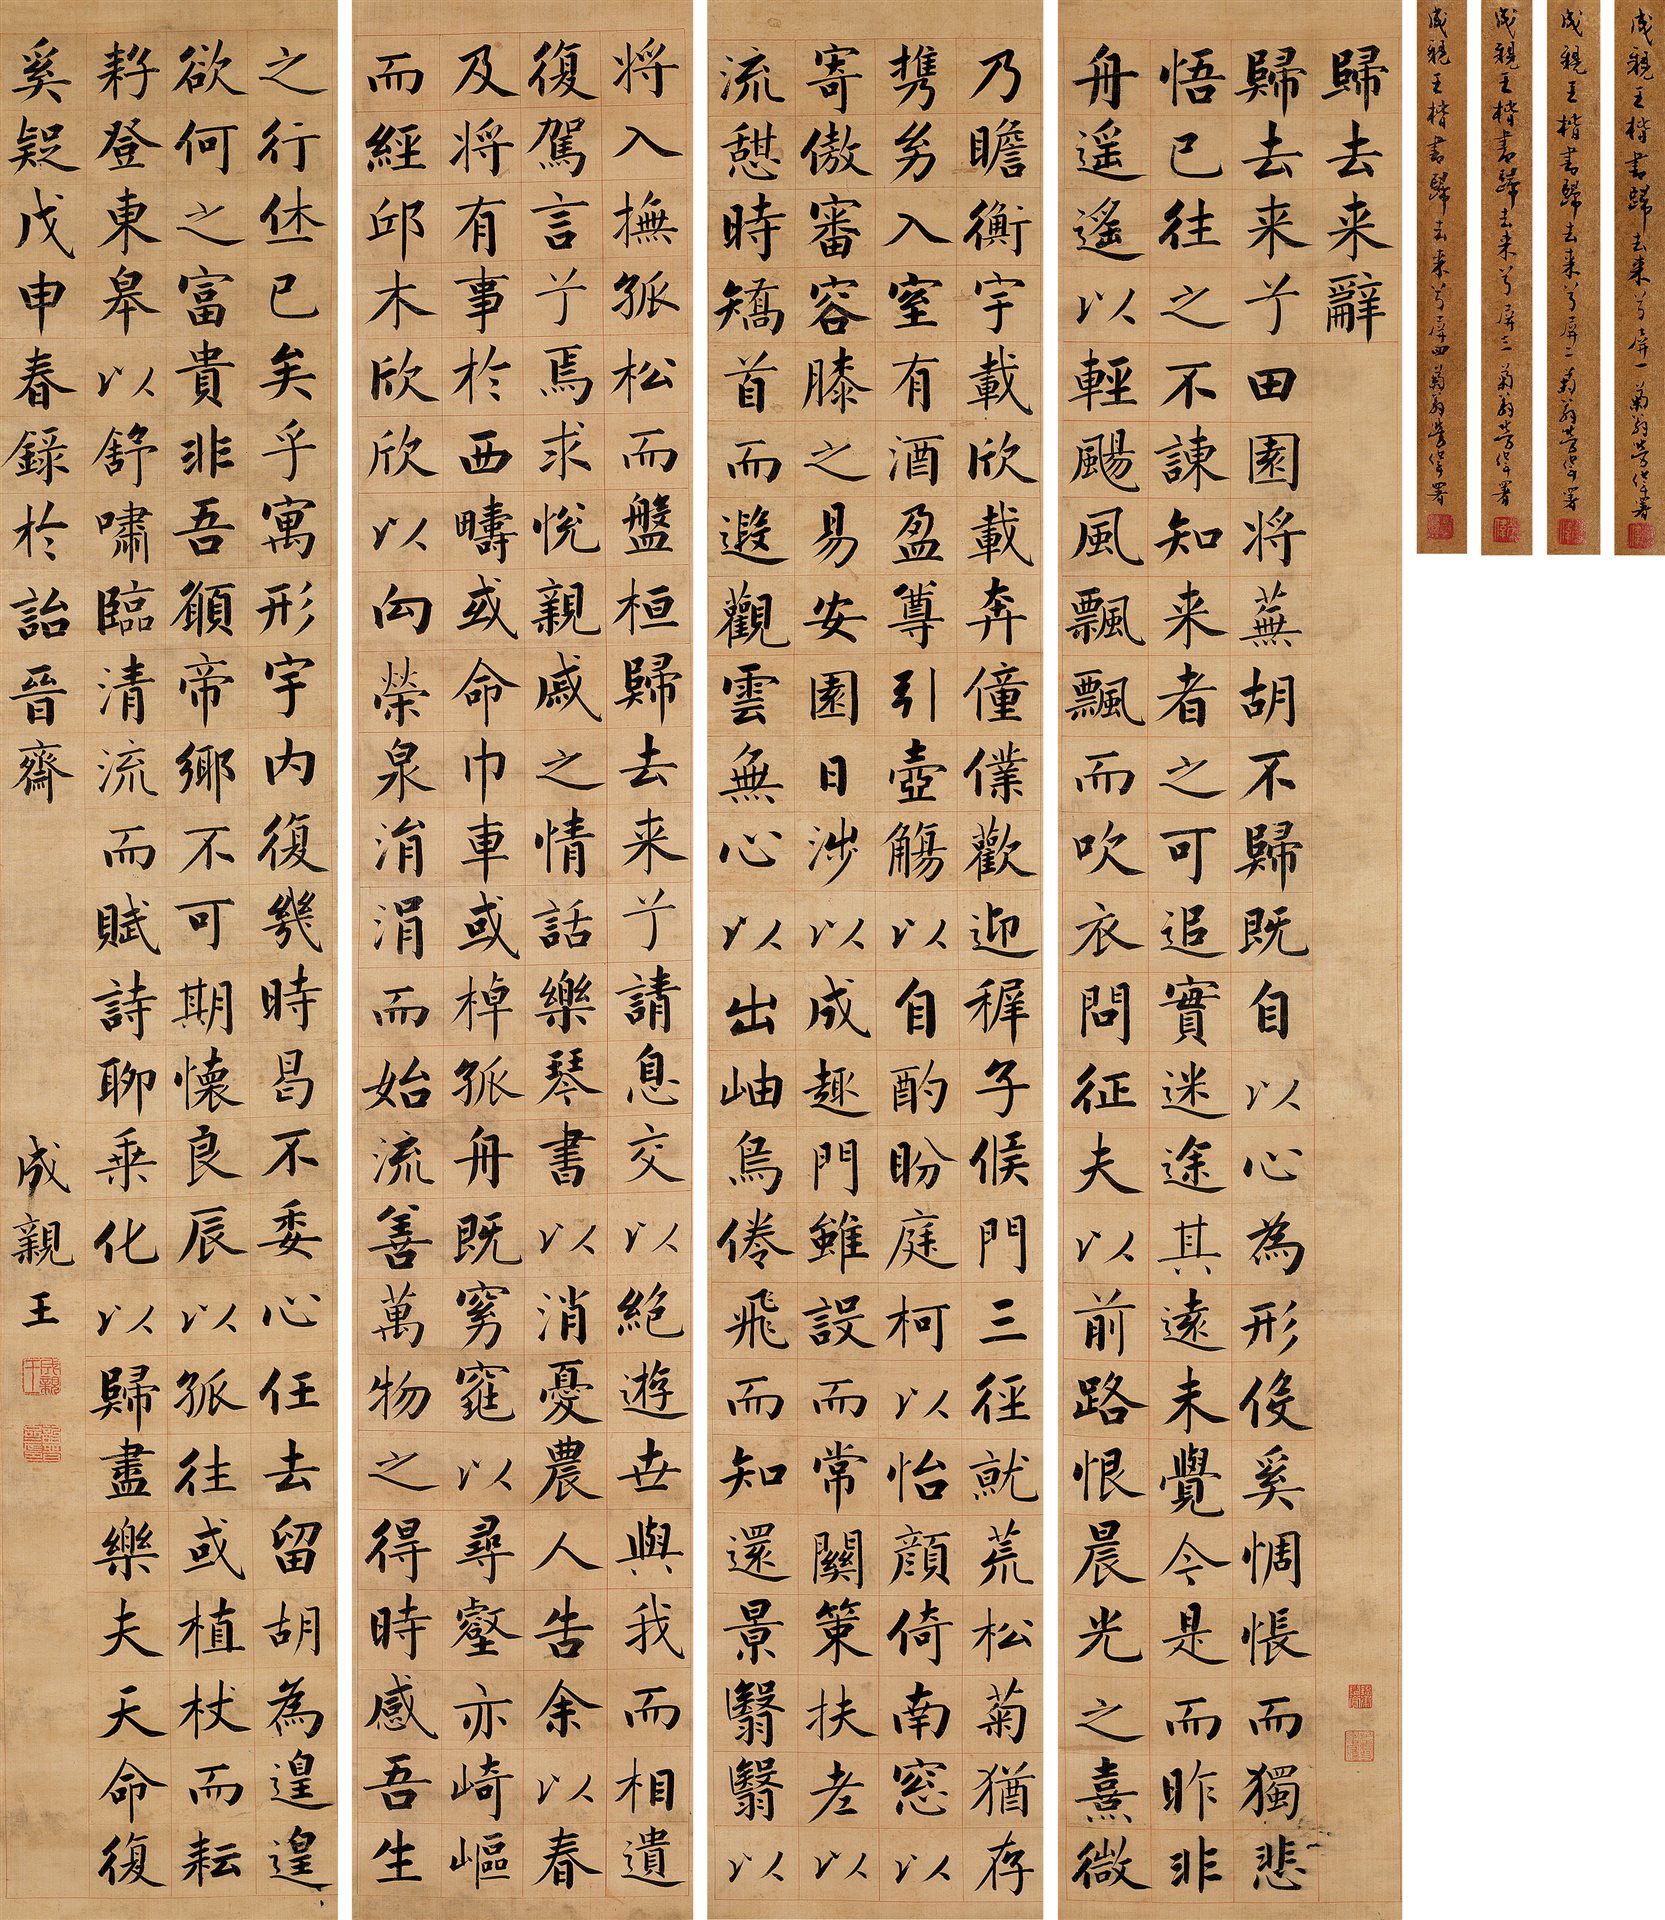 成親王楷書歸去来兮屏一 菊翁署
成親王楷書歸去来兮屏二 菊翁署
成親王楷書歸去来兮屏三 菊翁署
成親王楷書歸去来兮屏四 菊翁署
歸去来辭
歸去来兮田園将蕪胡不歸既自以心為形伇奚惆悵而獨悲
悟已往之不諫知来者之可追實迷途其逺未覺今是而昨非
舟遥遥以輕颺風飄飄而吹衣問征夫以前路恨晨光之熹微
乃瞻衡宇載欣載奔僮僕歡迎稺子候門三徑就荒松菊猶存
携㓜入室有酒盈尊引壺觴以自酌盼庭柯以怡顔倚南窓以
寄傲審容膝之易安園日涉以成趣門雖設而常關策扶老以
流憇時矯首而遐觀雲無心以出岫鳥倦飛而知還景翳翳以
将入撫孤松而盤桓歸去来兮請息交以絶遊世與我而相遺
復駕言兮焉求悅親戚之情話樂琴書以消憂農人告余以春
及将有事於西疇或命巾車或棹孤舟既窈窕以尋壑亦崎嶇
而經邱木欣欣以向榮泉涓涓而始流善萬物之得時感吾生
之行休已矣乎寓形宇内復幾時曷不委心任去留胡為遑遑
欲何之富貴非吾願帝鄉不可期懐良辰以孤往或植杖而耘
耔登東皋以舒嘯臨清流而賦詩聊乘化以歸盡樂夫天命復
奚疑戊申春録於詒晉齋
成親王